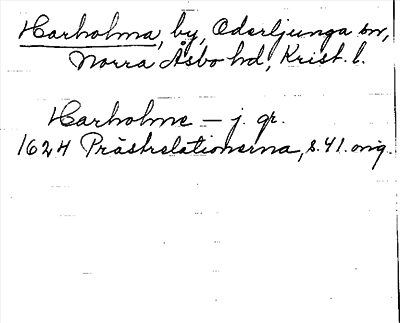 Harholma, by, Oderljunga sn,
Norra Åsbo hd, Krist. l.
Harholme – j. gr.
1624 Prästrelationerna, s. 41. orig.